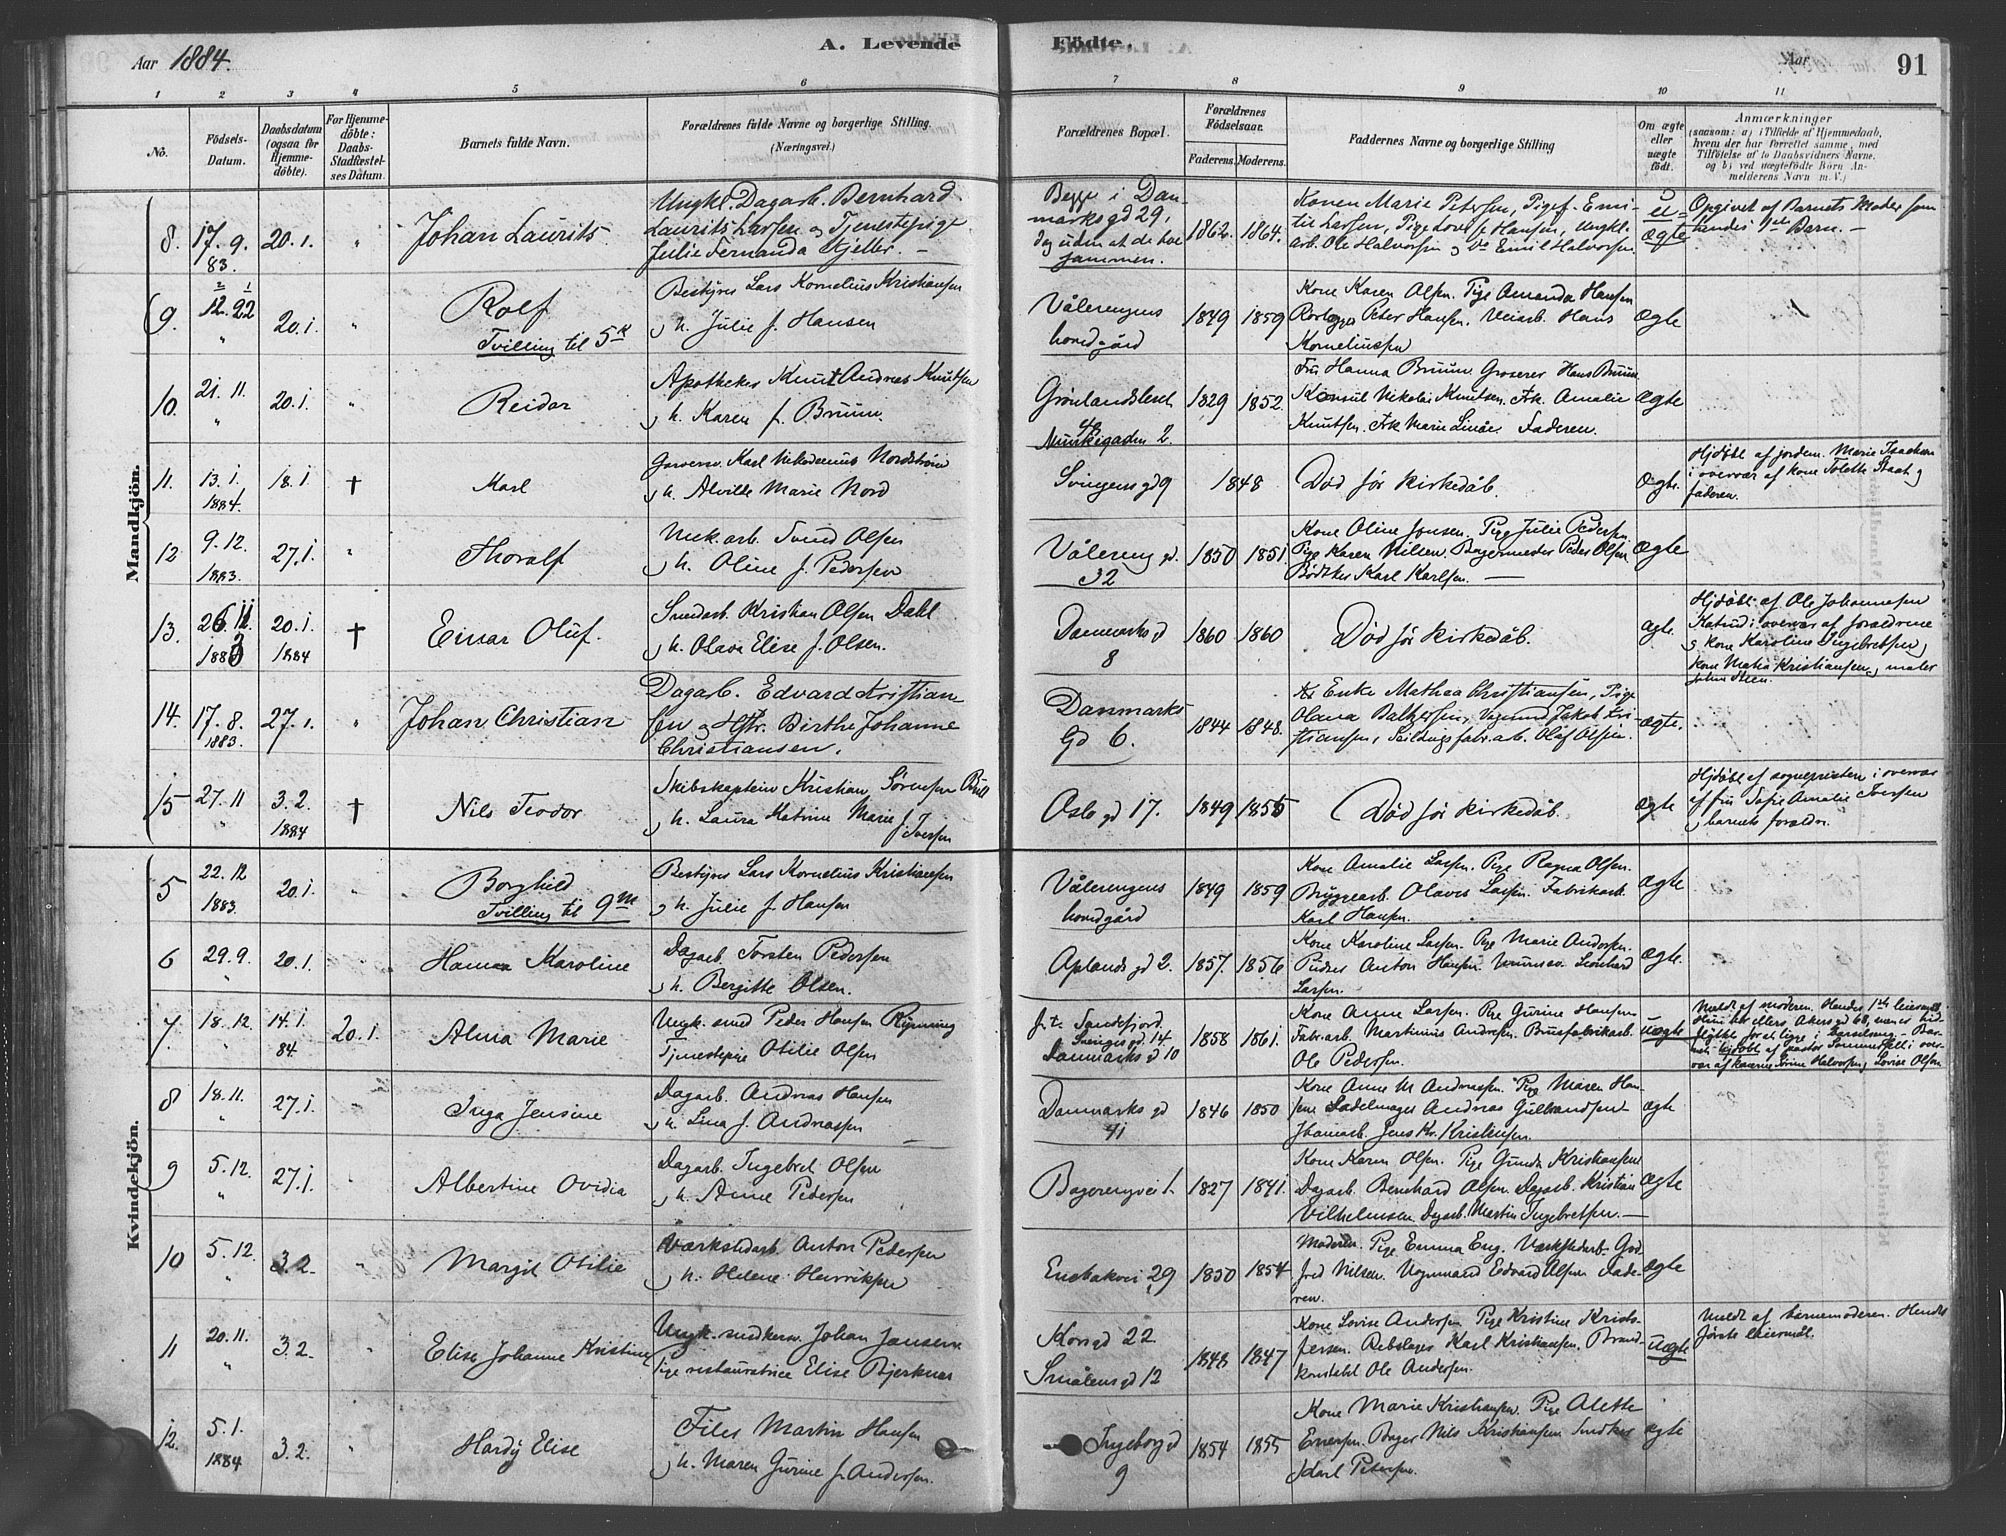 Aar 1884.
A. Levende Födte.
Aar
91
1 2 3 4 5 6 7 8 9 10 11
No.
Födsels-
Datum.
Daabsdatum
(ogsaa for
Hjemme-
döbte).
For Hjemme-
döbte:
Daabs-
Stadfæstel-
ses Datum.
Barnets fulde Navn.
Forældrenes fulde Navne og borgerlige Stilling.
(Næringsvei.)
Forældrenes Bopæl.
Forældrenes
Födselsaar.
Faderens. Moderens.
Faddernes Navne og borgerlige Stilling
Om ægte
eller
uægte
födt.
Anmærkninger
(saasom: a) i Tilfælde af Hjemmedaab,
hvem der har forrettet samme, med
Tilföielse af to Daabsvidners Navne,
og b) ved uægtefödte Börn An-
melderens Navn m. V.)
Mandkjön.
8. 17. 9. 83. 20.1. " Johan Laurits
Ungkl. Dagarb. Bernhard
Laurits Larsen og Tjenestepige
Julie Fernanda Kjeller. —
Begge i Dan-
marks gd 29,
dog uden at de bor
sammen.
1862. 1864.
Konen Marie Petersen, Pigef. Emi-
lie Larsen, Pige Lovise Hansen, Ungkl.
arb. Ole Halvorsen og Do Emil Halvorsen.
u-
ægte
Opgivet af Barnets Moder som
hendes 1ste Barn. —
9. 12. 22 " 20.1. " Rolf
Tvilling til 5k
Bestyrer Lars Kornelius Kristiansen
og h. Julie f. Hansen
Vålerengens
hovedgård
1849 1859
Kone Karen Olsen. Pige Amanda Hansen
Rorlegger Peter Hansen. Veiarb. Hans
Korneliussen
Ægte
10. 21. 11. " 20.1. " Reidar
Apotheker Knut Andreas Knutsen
og h. Karen f. Bruun.
Grønlandsleret
Munkegaden 2.
1829 1852.
Fru Hanna Bruun. Groserer Hans Bruun
Konsul Nikolai Knutsen. Frk. Amalie
Knutsen. Frk Marie Linåe. Faderen.
Ægte
11. 13.1. 1884. 18.1 † Karl
Garversv. Karl Nikodemus Nordstrøm
og h. Alvilde Marie Nord
Svingens gd 9
1848
Død før kirkedåb.
Ægte.
Hjdøbt af jordem. Marie Isachsen
i overvær af kone Tolette Staat og
faderen.
12 9. 12. 1883. 27.1. " Thoralf
Mek. arb. Svend Olsen
og h. Oline f. Pedersen
Vålereng gd.
32
1850 1851.
Kone Oline Jonsen. Pige Julie Pedersen.
Pige Karen Nilsen. Bagermester Peder Olsen
Bødtker Karl Karlsen. —
Ægte
13. 26. 11. 1883 20.1. 1884 † Einar Oluf.
Smedarb. Kristian Olsen Dahl
og h. Olava Elise f. Olsen.
Danmarks gd
8
1860 1860
Død før kirkedåb.
ægte.
Hjdøbt af Ole Johannesen
i overvær af forældrene
og kone Karoline Ingebretsen,
kone Matia Kristiansen, maler
John Steen.
14. 17. 8. 1883. 27.1. " Johan Christian
Dagarb. Edvard Kristian-
sen og Hstr. Birthe Johanne
Christiansen.
Danmarks
Gd 6.
1844 1848.
Enke Mathea Christiansen, Pige
Olava Balkersen, Vognmd Jakob Kri-
stiansen, Seildugsfabr. arb. Olaf Olsen.
ægte.
15 27. 11 " 3.2. 1884 † Nils Teodor
Skibskaptein Kristian Sørensen Bull
og h. Laura Katrine Marie f.
Iversen
Oslo gd 17.
1849 1855
Død før kirkedåb.
Ægte
Hjdøbt af sognepresten i overvær
af fru Sofie Amalie Iversen
og barnets foreldre.
Kvindekjön.
5 22. 12 1883. 20.1. " Borghild
Tvilling til 9m
Bestyrer Lars Kornelius Kristiansen
og h. Julie f. Hansen
Vålerengens
hovedgård
1849 1859
Kone Amalie Larsen. Pige Ragna Olsen.
Bryggearb. Olaves Larsen. Fabrikarb.
Karl Hansen.
Ægte
6 29. 9. 20.1. " Hanna Karoline
Dagarb. Torsten Pedersen
og h. Bergitte Olsen.
Oplands gd 2.
1857. 1856
Kone Karoline Larsen. Pige Marie Andersen.
Pudser Anton Hansen. Leonhard
Larsen.
Ægte.
7. 18. 12. " 14.1. 84. 20.1. Alma Marie
Ungk. smed Peder Hansen Rynning
Tjenestepige Otilie Olsen
f.t. Sandefjord.
Sveriges gd. 14
Danmarks gd 10
1858 1861.
Kone Anne Larsen. Pige Gurine Hansen
Fabr. arb. Martinius Andresen. Brusfabrikarb.
Ole Pedersen.
Uægte
Meldt af moderen. Hendes 1ste leiersmål.
Hun bor ellers Akers gd 68, men er hid-
flyttet for at ligge i Barselseng. — Bar-
net hjdøbt af pastor Sommerfelt i over-
vær af konerne Anne Halvorsen, Lovise Olsen
8 18. 11. " 27.1. " Inga Jensine
Dagarb. Andreas Hansen
og h. Lina f. Andreassen
Danmarks gd
41
1846 1850
Kone Anne M. Andreassen. Pige Maren Han-
sen. Sadelmager Andreas Gulbrandsen
Jens Kr. Kristensen.
Ægte
9 5. 12. " 27.1. Albertine Ovidia
Dagarb. Ingebret Olsen
og h. Anne Pedersen
Bagerengvei 1.
1827 1841.
Kone Karen Olsen. Pige Gunda Kristiansen
Dagarb. Bernhard Olsen. Dagarb. Kristian
Vilhelmsen. Dagarb. Martin Ingebretsen. —
Ægte
10 5. 12. " 3.2. " Margit Otilie
Værkstedarb. Anton Pedersen
og h. Helene Henriksen
Enebakvei 29
1850 1854
Moderen. Pige Emma Eng. Værkstedarb. God-
fred Nilsen. Vognmand Edvard Olsen Fade-
ren.
Ægte
11 20. 11. " 3.2. " Elise Johanne Kristine
Ungk. snedkersv. Johan Jansen.
Pige restauratrice Elise Bjerknæs
Kors gd 22
Smålens gd 12
1848 1847
Kone Lovise Andersen Pige Kristine Krist-
fersen. Rebslager Karl Kristiansen. Brand-
konstabl Ole Andersen.
Uægte
Meldt af barnemoderen. Hendes
første leiersmål.
12. 5.1. 1884 3.2. " Hardy Elise
Filer Martin Hansen
og h. Maren Gurine f. Andersen.
Ingeborg gd
9
1854 1855
Kone Marie Kristiansen. Pige Alette
Enersen. Bager Nils Kristiansen. Snedker
Karl Petersen.
ægte